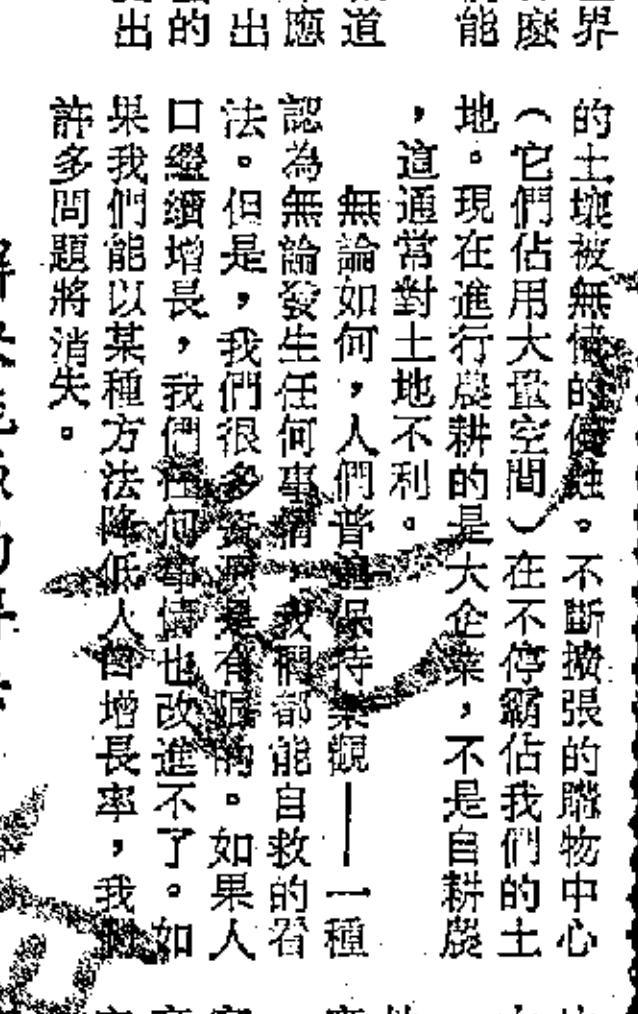 界
麼
能
道
應
出
的
出
的土壤被無情的侵蝕。不斷擴張的購物中心
（它們佔用大量空間）在不停霸佔我們的土
地。現在進行農耕的是大企業，不是自耕農
，這通常對土地不利。
無論如何，人們普遍保持樂觀——一種
認為無論發生任何事情，我們都能自救的看
法。但是，我們很多資源是有限的。如果人
口繼續增長，我們任何事情也改進不了。如
果我們能以某種方法降低人口增長率，我們
許多問題將消失。